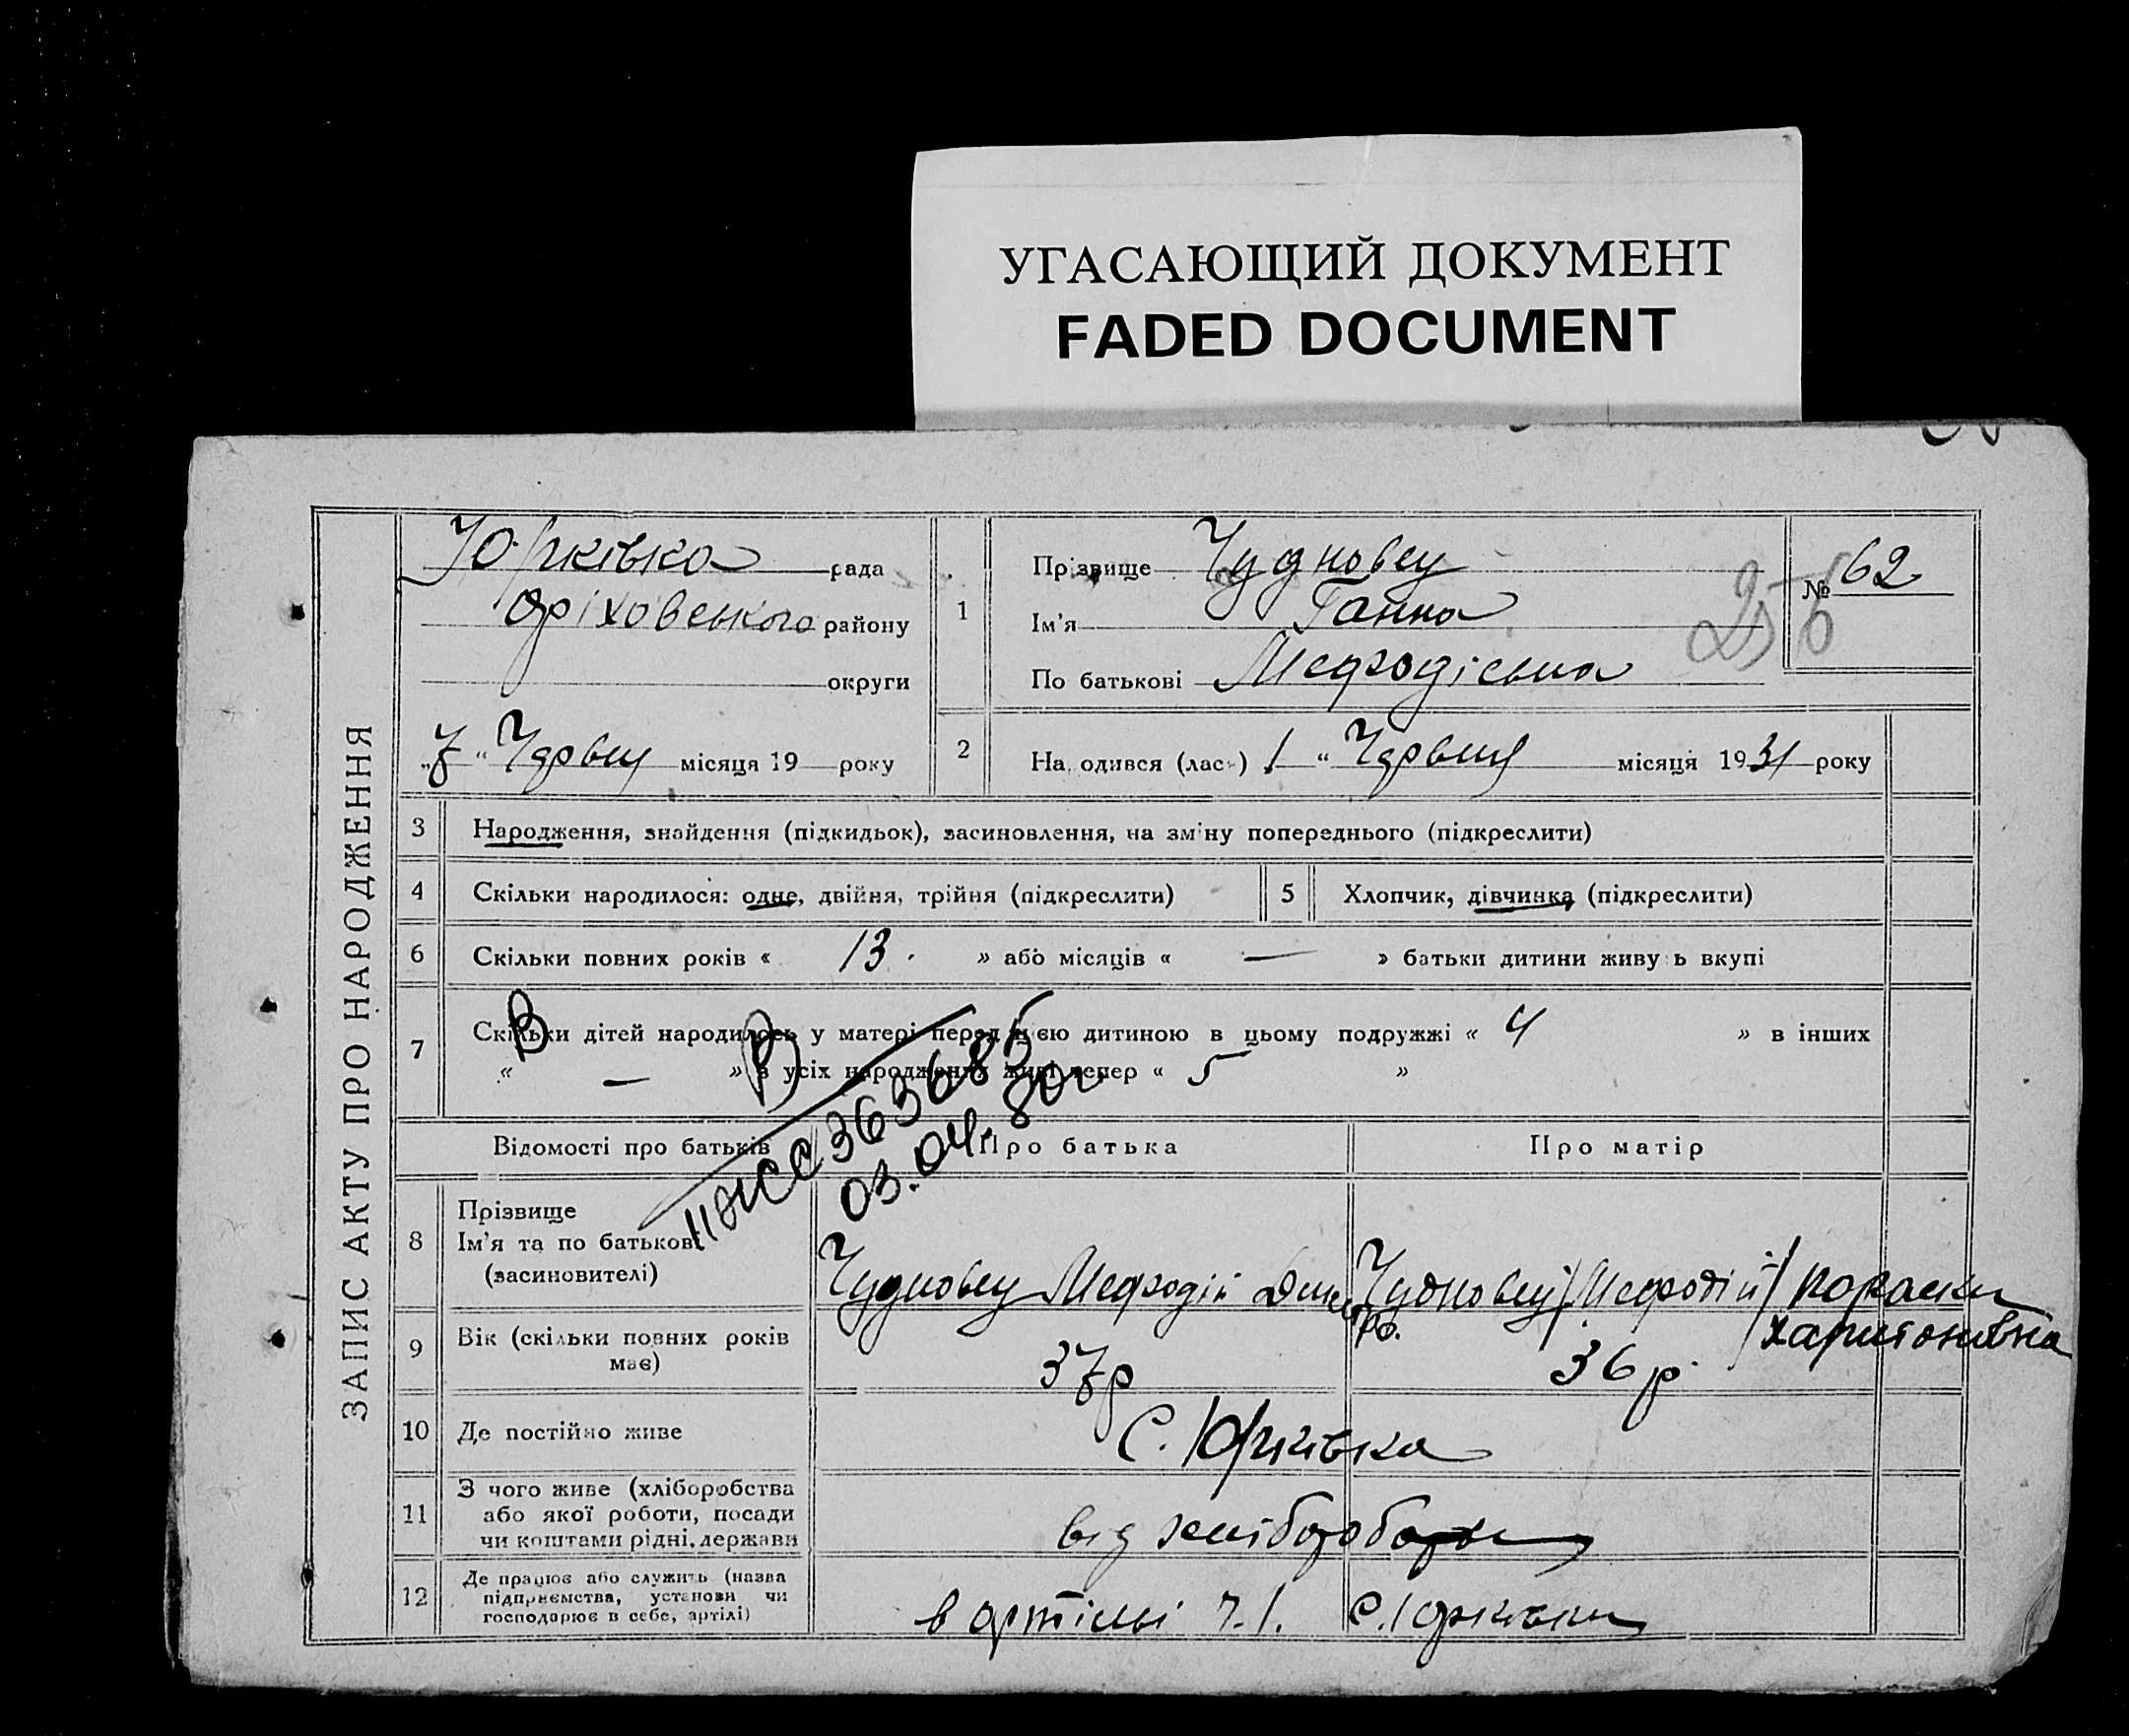 УГАСАЮЩИЙ ДОКУМЕНТ
FADED DOCUMENT
ЗАПИС АКТУ ПРО НАРОДЖЕННЯ
Юрківка рада
Оріховського району
округи
„7“ Червця місяця 19 року
1
Прізвище Чудновец
Ім'я Ганна
По батькові Мефодієвна
№ 62
256
2
На одився (лась) 1 “ Червця місяця 1931 року
3 Народження, знайдення (підкидьок), засиновлення, на зміну попереднього (підкреслити)
4 Скільки народилося: одне, двійня, трійня (підкреслити)
5 Хлопчик, дівчинка (підкреслити)
6 Скільки повних років « 13 . » або місяців « — » батьки дитини живуть вкупі
7 Скільки дітей народилось у матері перед цією дитиною в цьому подружжі « 4 » в інших
« — » з усіх народжених живі тепер « 5 »
В В
363685
03.04.80г
Відомості про батьків Про батька Про матір
8 Прізвище
Ім'я та по батькові
(засиновителі)
Чудновец Мефодій
Чудновец /Мефодій/
Харитонівна
9 Вік (скільки повних років
має)
37р 36р.
10 Де постійно живе
С. Юрківка
11 З чого живе (хліборобства
або якої роботи, посади
чи коштами рідні, держави
від хлібороб
12 Де працює або служить (назва
підприємства, установи чи
господарює в себе, артілі)
в артілі ч. 1. С. Юрківки